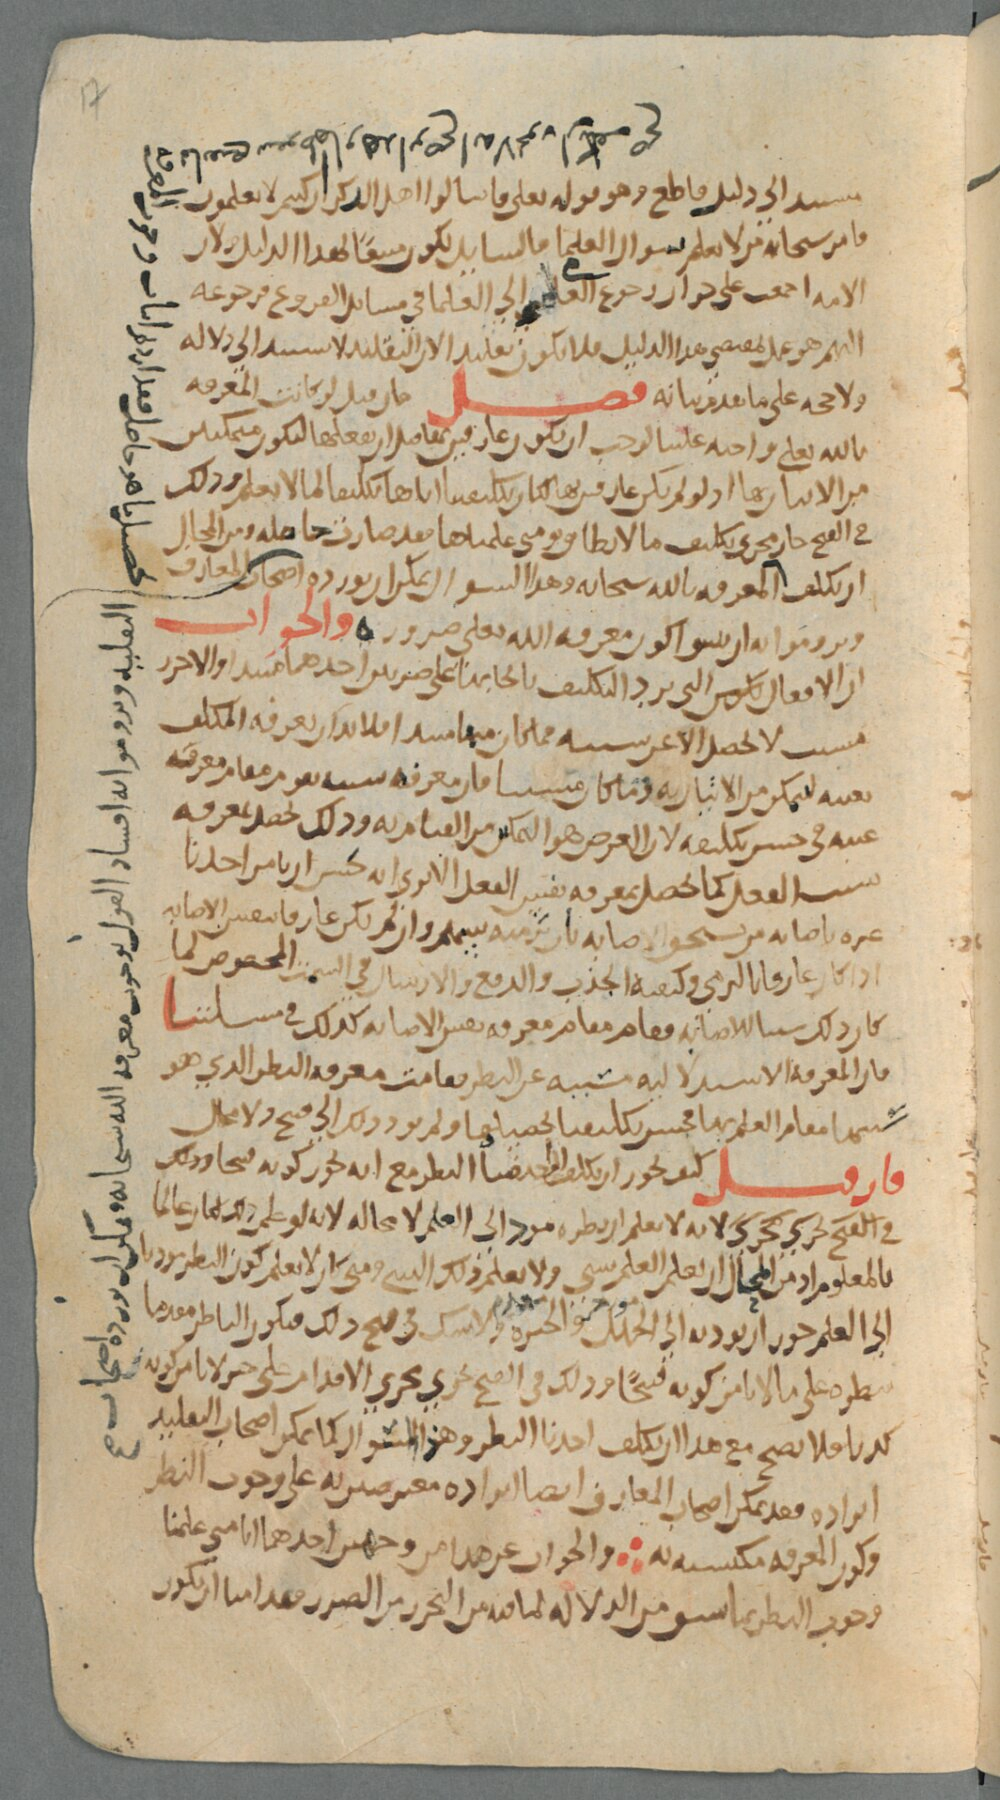 مستند الى دليل قاطع وهو قوله تعالى فاسالوا اهل الذكر ان كنتم لا تعلمون
فامر سبحانه من لا يعلم بسوال العلما فالسايل يكون متبعًا لهذا الدليل ولان
الامه اجمعت على جواز رجوع العامي الى العلما في مسايل الفروع فرجوعه
اليهم هو عمل بمقتضى هذا الدليل فلا يكون تقليدا لان التقليد لا يستند الى دلاله
ولا حجه على ما تقدم بيانه فصل فان قيل لو كانت المعرفه
بالله تعالى واجبه علينا لوجب ان نكون عارفين بها قبل ان نفعلها لنكون متمكنين
من الاتيان بها اذ لو لم نكن عارفين بها لكان تكليفنا اياها تكليفا لما لا يعلم وذلك
في القبح جار مجرى تكليف ما لا يطاق ومتى علمناها فقد صارت حاصله ومن المحال
ان نكلف المعرفه بالله سبحانه وهذا السوال يمكن ان يورده اصحاب المعارف
ويروموا به ان يبينوا كون معرفه الله تعالى ضروره والجواب
ان الافعال التي يرد التكليف بايجابها على ضربين احدهما مبتدا والاخر
مسبب لا يحصل الا عن سببه فما كان منها مبتدا فلا بد ان يعرفه المكلف
بعينه ليتمكن من الاتيان به وما كان مسببا فان معرفة سببه يقوم مقام معرفته
عينه في حسن تكليفه لان الغرض هو التمكن من القيام به وذلك يحصل بمعرفه
سبب الفعل كما يحصل بمعرفه نفس الفعل الا ترى انه يحسن ان يامر احدنا
غيره باصابه من يستحق الاصابه بان يرميه بسهم وان لم يكن عارفا بنفس الاصابه
اذا كان عارفا بالرمي وكيفية الجذب والدفع والارسال في السمت المخصوص لما
كان ذلك سببا للاصابه فقام مقام معرفه نفس الاصابه كذلك في مسلتنا
فان المعرفة الاستدلاليه مسببه عن النظر فقامت معرفه النظر الذي هو
سببها مقام العلم بها فحسن تكليفنا تحصيلها ولم يؤد ذلك الى قبح ولا محال
فان قيل كيف يجوز ان يكلف احدنا النظر مع انه يجوز كونه قبيحا وذلك
في القبح يجري مجرى لانه لا يعلم ان نظره مودٍ الى العلم لا محاله لانه لو علم ذلك لكان عالما
بالمعلوم اذ من المحال ان يعلم العلم بشي ولا يعلم ذلك الشي ومتى كان لا يعلم كون النظر موديا
الى العلم جوز ان يوديه الى الجهل والحيره ولا شك في قبح ذلك فيكون الناظر مقدما
بنظره على ما لا يامن كونه قبيحًا وذلك في القبح يجري مجرى الاقدام على خبر لا يامن كونه
كذبا فلا يصح مع هذا ان يكلف احدنا النظر وهذا السوال كما يمكن اصحاب التقليد
ايراده فقد يمكن اصحاب المعارف ايضا ايراده معترضين به على وجوب النظر
وكون المعرفه مكتسبه به والجواب عن هذا من وجهين احدهما انا متى علمنا
وجوب النظر بما سبق من الدلاله لما فيه من التحرز من الضرر فقد امنا ان يكون
تحصيل ما هو حاصل
التقليد ويروموا به افساد القول بوجوب معرفه الله سبحانه ويمكن ان يورده اصحاب